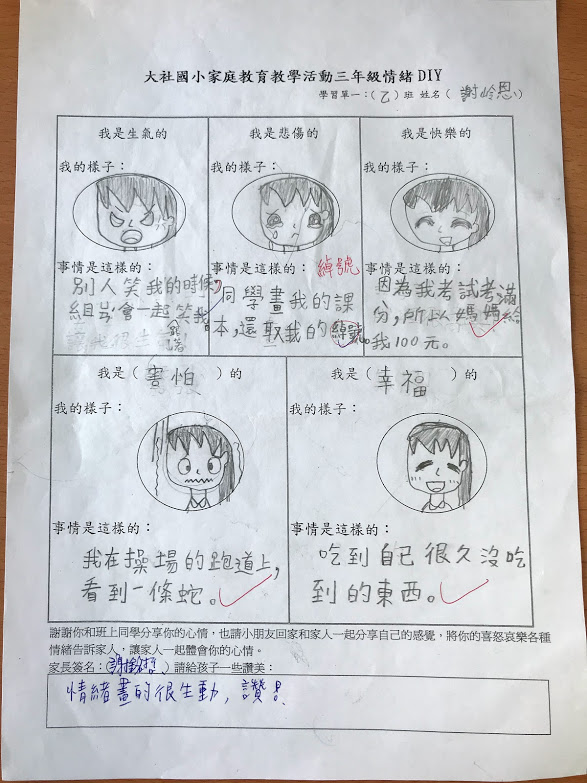 大社國小家庭教育教學活動三年級情緒DIY
學習單一：(乙)班 姓名(謝岭恩)
我是生氣的
我的樣子：
事情是這樣的：
別人笑我的時候，
組岀會一起笑我
我是悲傷的
我的樣子：
事情是這樣的：
綽號
同學畫我的課
本，還取我的綽號。
我是快樂的
我的樣子：
事情是這樣的：
因為我考試考滿
分，所以媽媽給
我100元。
我是(害怕)的
我的樣子：
事情是這樣的：
我在操場的跑道上，
看到一條蛇。
我是(幸福)的
我的樣子：
事情是這樣的：
吃到自已很久沒吃
到的東西。
謝謝你和班上同學分享你的心情，也請小朋友回家和家人一起分享自己的感覺，將你的喜怒哀樂各種
情緒告訴家人，讓家人一起體會你的心情。
家長簽名：( )請給孩子一些讚美：
情緒畫的很生動，讚！